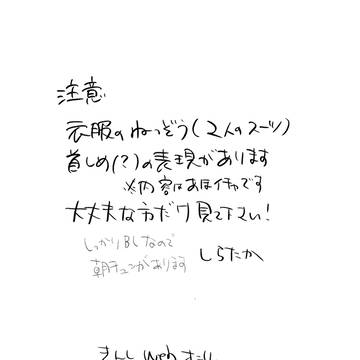 注意
衣服のねつぞう(2人のスーツ)
首しめ(?)の表現があります
※内容はあほイチャです
大丈夫な方だけ見て下さい!
しっかりBLなので
朝チュンがあります
しらたか
Web